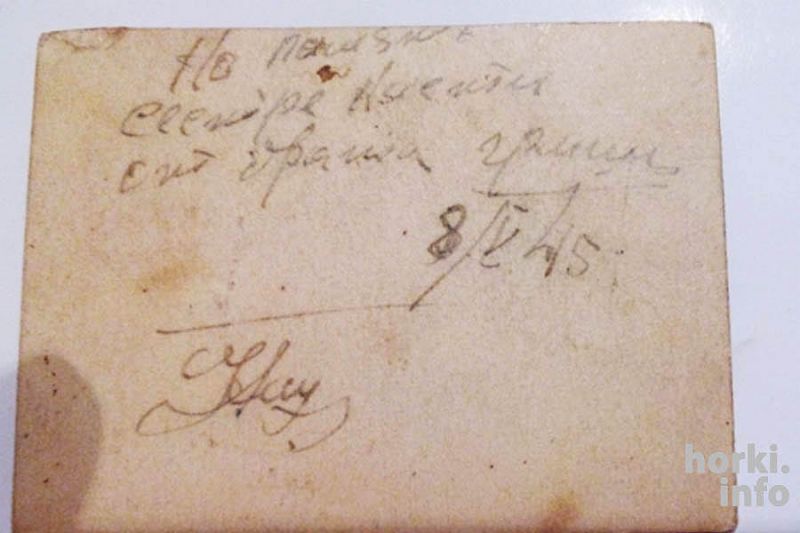 На память
сестре Насти
от брата Гриши
8/V 45
horki.
info